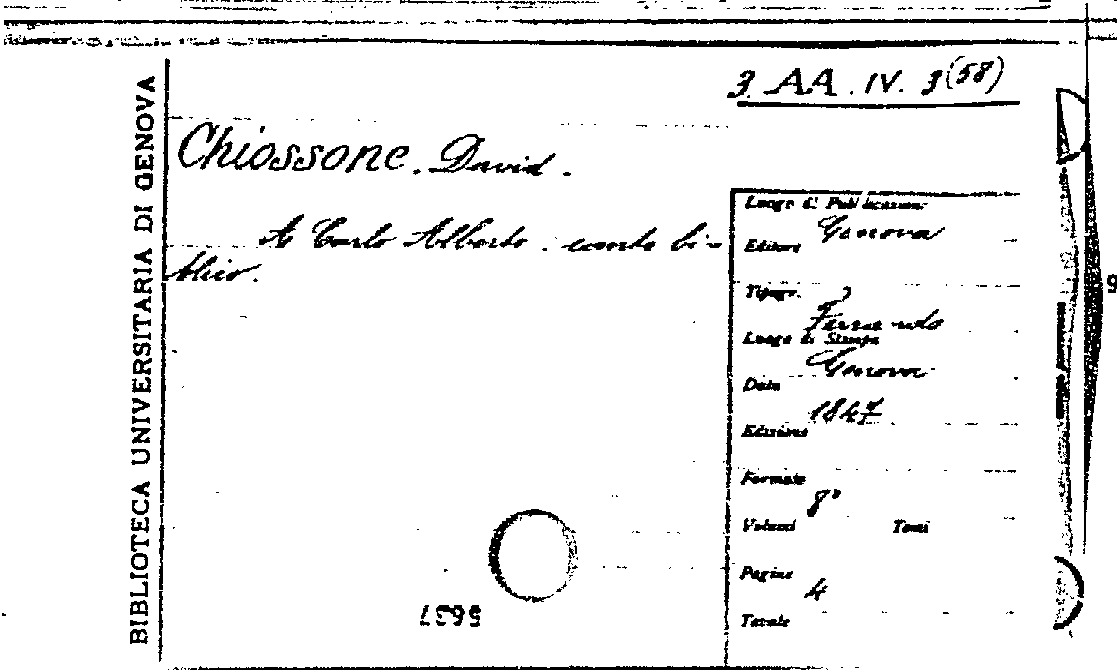 3. AA. IV. 3(58)
BIBLIOTECA UNIVERSITARIA DI GENOVA
Chiossone. David.
A Carlo Alberto. canto bi-
blico.
Luogo di Pubblicazione
Genova
Editore
Tipogr.
Ferrando
Luogo di Stampa
Genova
Data
1847
Edizione
Formato
8°
Volumi Tomi
Pagine
4
Tavole
5637
9